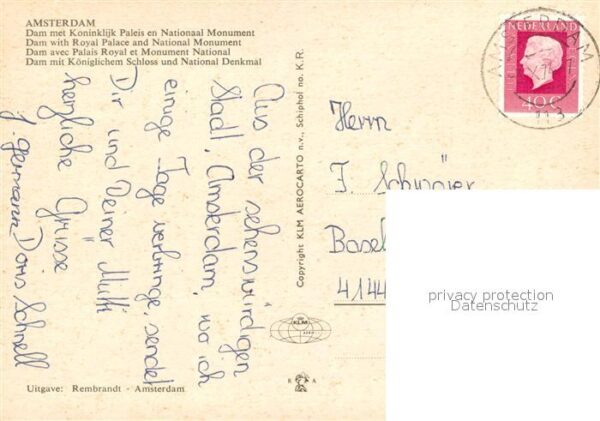 AMSTERDAM
Dam met Koninklijk Paleis en Nationaal Monument
Dam with Royal Palace and National Monument
Dam avec Palais Royal et Monument National
Dam mit Königlichem Schloss und National Denkmal
Aus der sehenswürdigen
Stadt, Amsterdam, wo ich
einige Tage verbringe, sendet
Dir und Deiner Mutti
herzliche Grüsse
Doris Schnell
Copyright KLM AEROCARTO n.v., Schiphol no. K.R.
NEDERLAND
40 C
AMSTERDAM
Herrn
J. Schweizer
Basel
4144
KLM
R A
Uitgave: Rembrandt - Amsterdam
privacy protection
Datenschutz